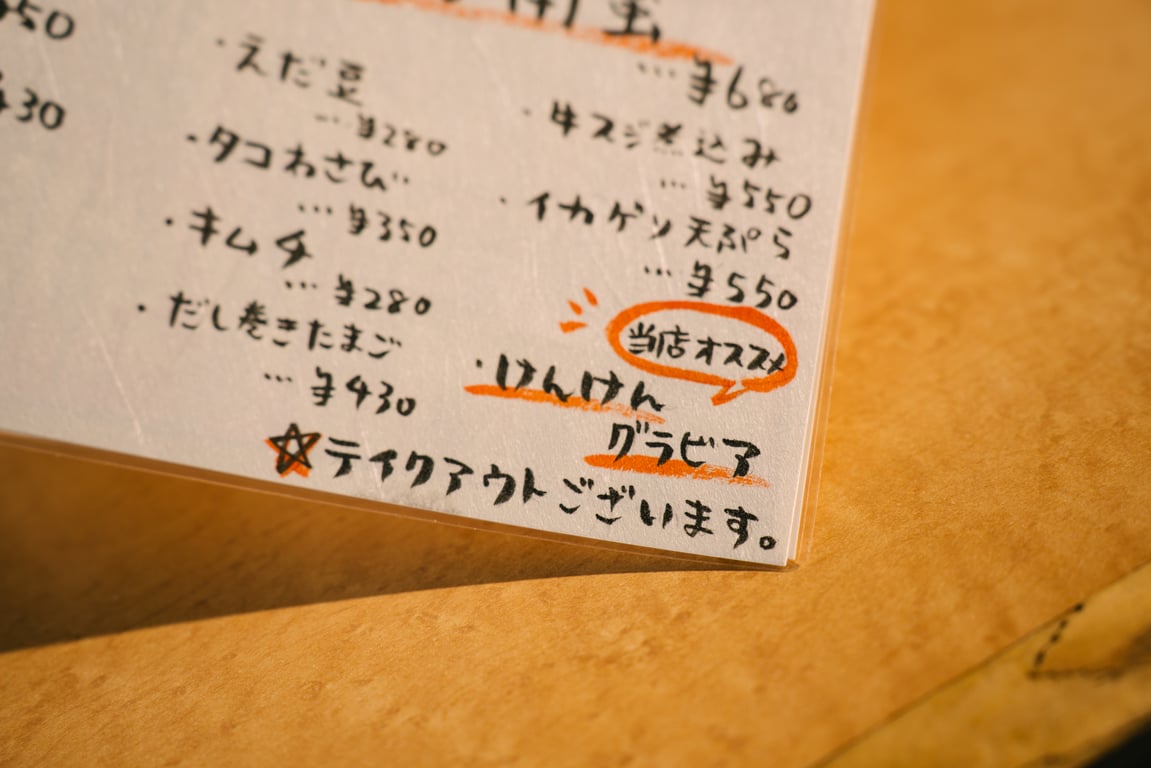 50
430
・えだ豆
… ¥280
・タコわさび
… ¥350
・キムチ
… ¥280
・だし巻きたまご
… ¥430
… ¥680
・牛スジ煮込み
… ¥550
・イカゲソ天ぷら
… ¥550
当店オススメ
・けんけん
グラビア
☆テイクアウトございます。